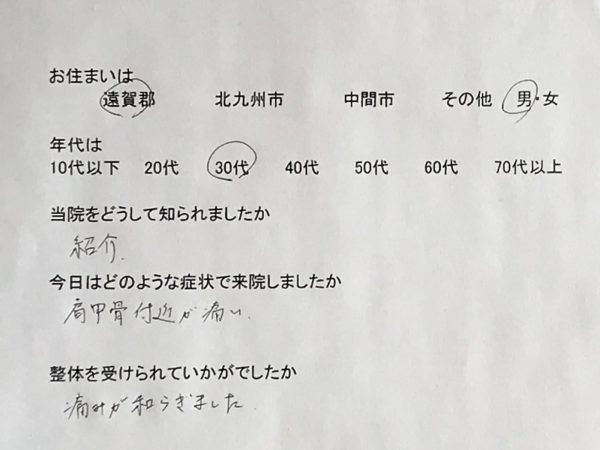 お住まいは
遠賀郡 北九州市 中間市 その他 男・女
年代は
10代以下 20代 30代 40代 50代 60代 70代以上
当院をどうして知られましたか
紹介.
今日はどのような症状で来院しましたか
肩甲骨付近が痛い.
整体を受けられていかがでしたか
痛みが和らぎました.